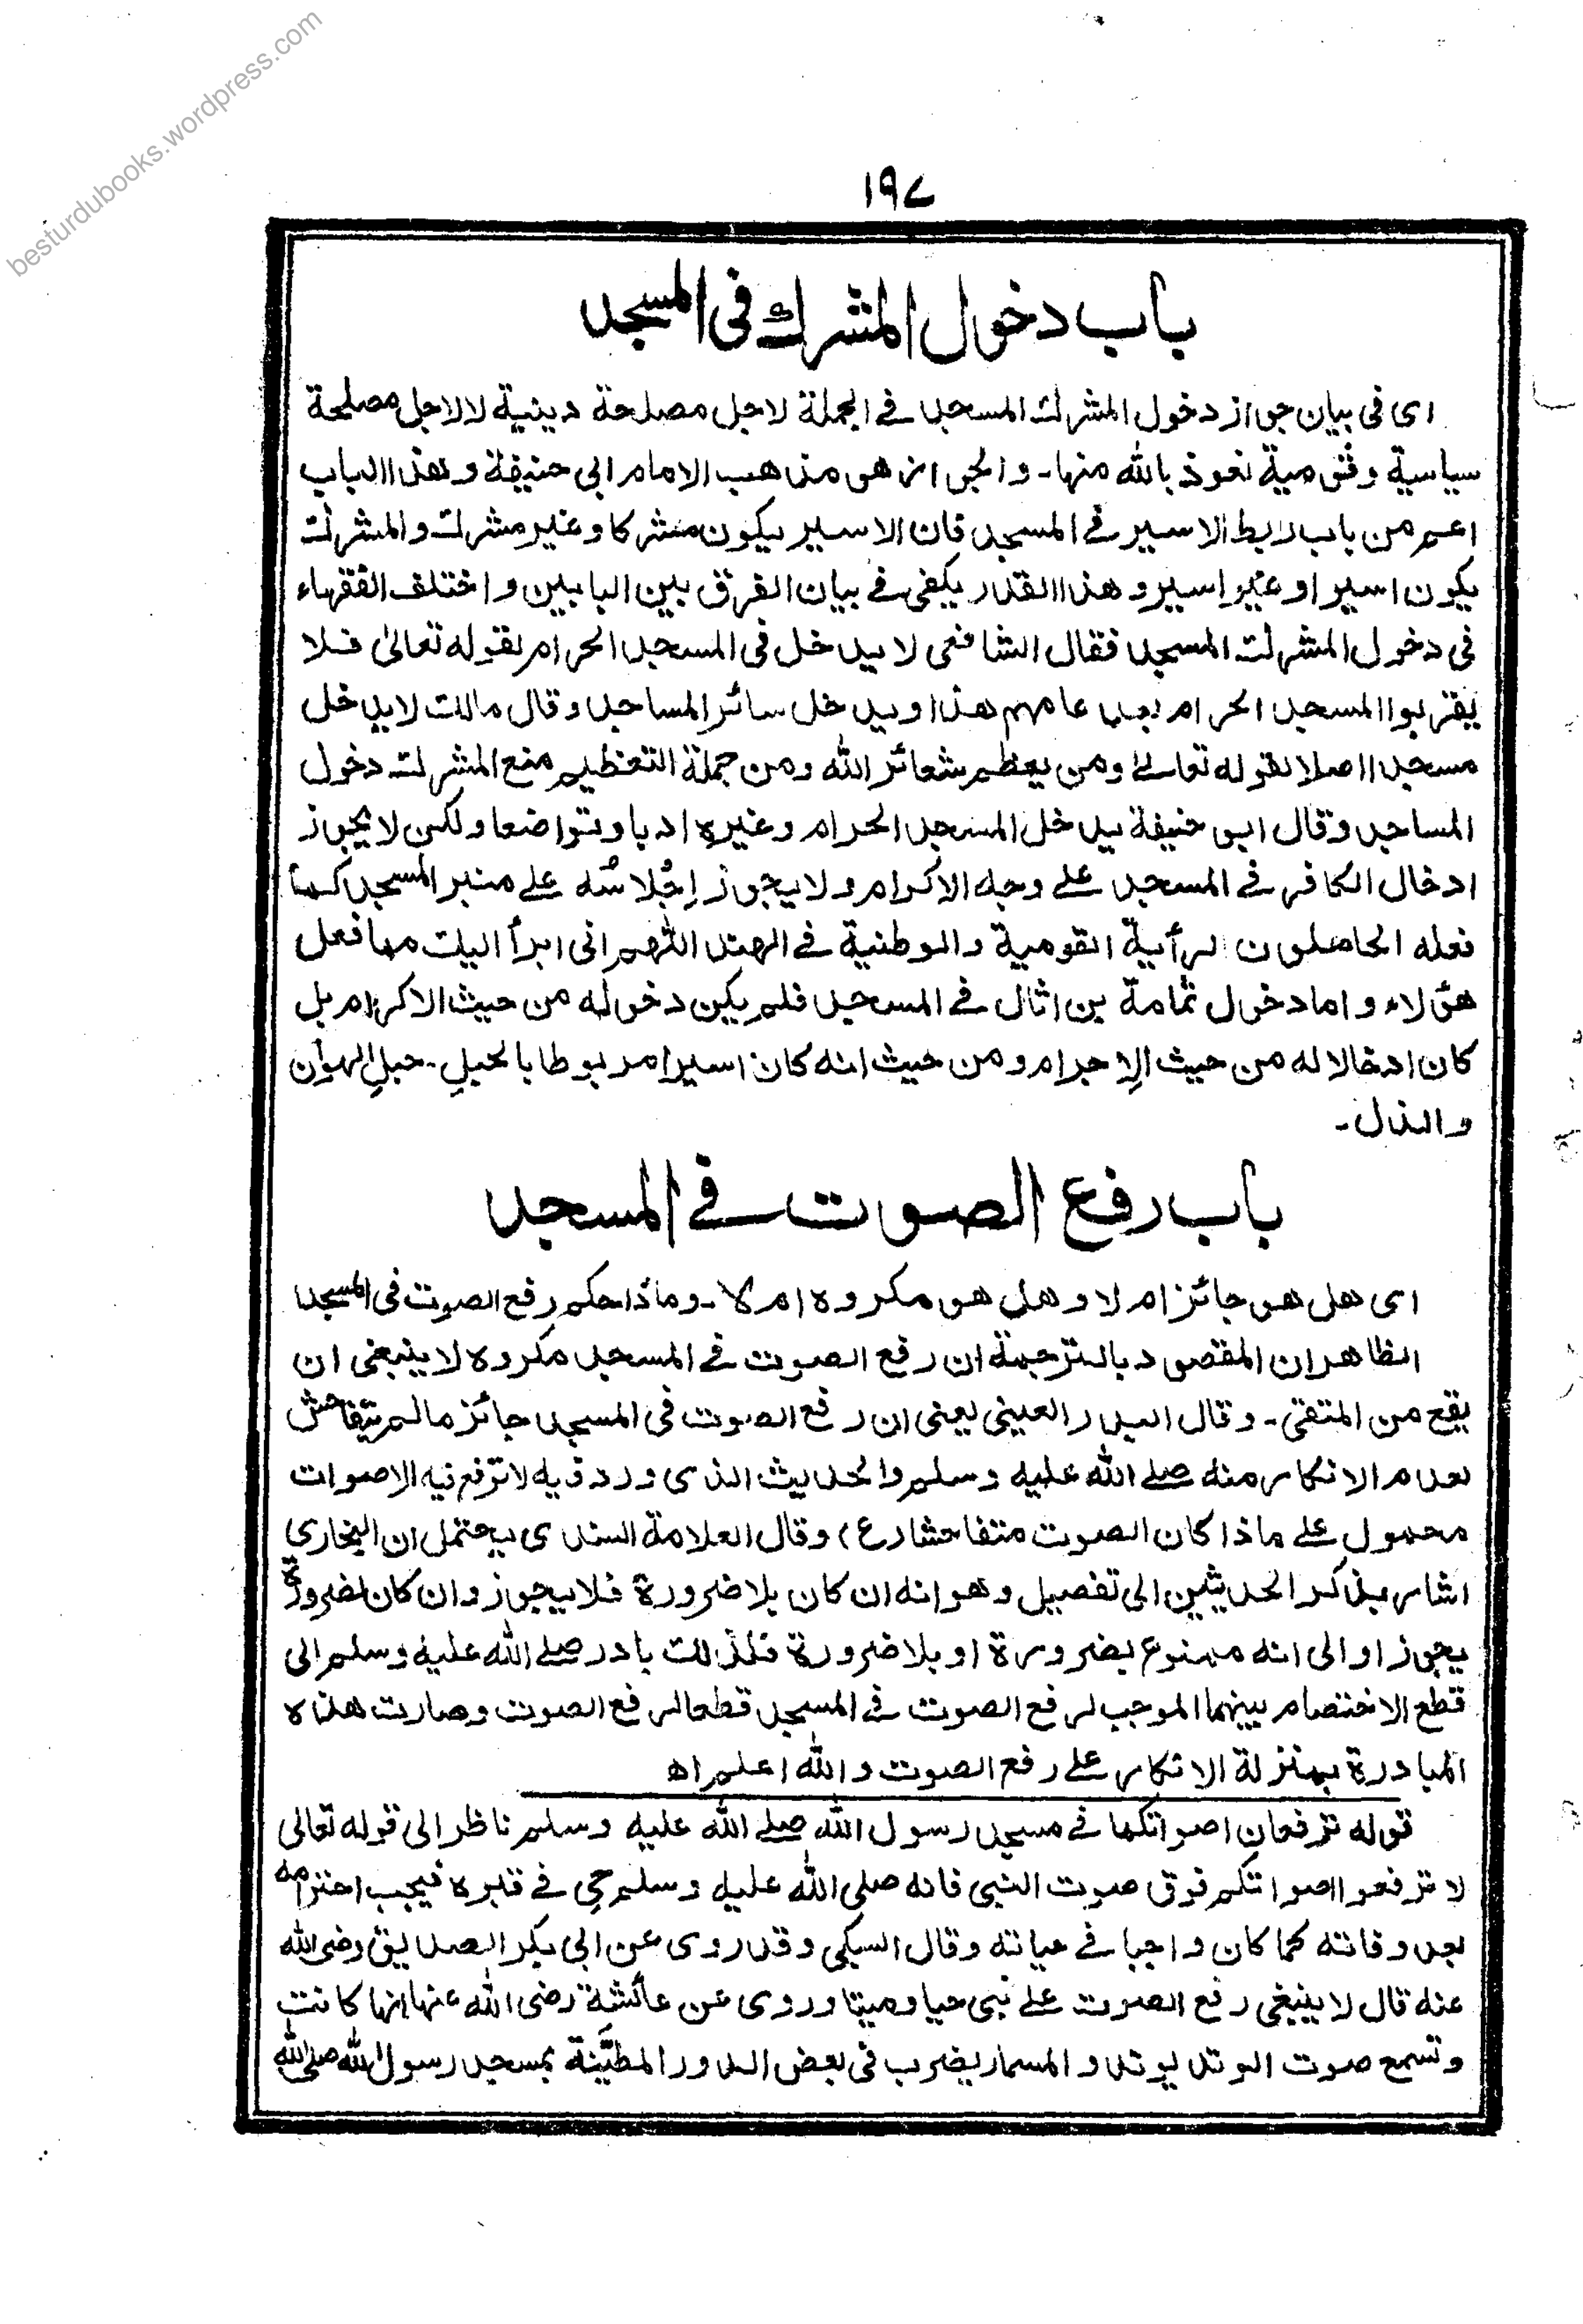 besturdubooks.wordpress.com
۱۹۷
باب دخول المشرك فى المسجد
اى فى بيان جواز دخول المشرك المسجد فى الجملة لاجل مصلحة دينية لا لاجل مصلحة
سياسية وقومية نعوذ بالله منها۔ والجواز هو مذهب الامام ابى حنيفة وهذا الباب
اعم من باب ربط الاسير فى المسجد فان الاسير يكون مشركا وغير مشرك والمشرك
يكون اسيرا وغير اسير وهذا القدر يكفى فى بيان الفرق بين البابين واختلف الفقهاء
فى دخول المشرك المسجد فقال الشافعى لا يدخل فى المسجد الحرام لقوله تعالىٰ فلا
يقربوا المسجد الحرام بعد عامهم هذا ويدخل سائر المساجد وقال مالك لا يدخل
مسجدا اصلا لقوله تعالى ومن يعظم شعائر الله ومن جملة التعظيم منع المشرك دخول
المساجد وقال ابو حنيفة يدخل المسجد الحرام وغيره ادبا وتواضعا ولكن لا يجوز
ادخال الكافر فى المسجد على وجه الاكرام ولا يجوز اِجْلاسُه على منبر المسجد كما
فعله الحاملون لرأية القومية والوطنية فى الهند اللهم انى ابرأ اليك مما فعل
هؤلاء واما دخول ثمامة بن اثال فى المسجد فلم يكن دخوله من حيث الاكرام بل
كان ادخالا له من حيث الاجرام ومن حيث انه كان اسيرا مربوطا بالحبل۔ حبلِ الهوان
والذل۔
باب رفع الصوت فى المسجد
اى هل هو جائز ام لا وهل هو مكروه ام لا۔ وماذا حكم رفع الصوت فى المسجد
الظاهر ان المقصود بالترجمة ان رفع الصوت فى المسجد مكروه لا ينبغى ان
يقع من المتقى۔ وقال البدر العينى يعنى ان رفع الصوت فى المسجد جائز مالم يتفاحش
لعدم الانكار منه صلے الله عليه وسلم والحديث الذى ورد فيه لا ترفع فيه الاصوات
محمول على ماذا كان الصوت متفاحشا رع) وقال العلامة السندى يحتمل ان البخارى
اشار بذكر الحديثين الى تفصيل وهو انه ان كان بلا ضرورة فلا يجوز وان كان لضرورة
يجوز او الى انه ممنوع بضرورة او بلا ضرورة فلذلك بادر صلے الله عليه وسلم الى
قطع الاختصام بينهما الموجب لرفع الصوت فى المسجد قطعا لرفع الصوت وصارت هذه
المبادرة بمنزلة الانكار على رفع الصوت والله اعلم اھ
قوله ترفعان اصواتكما فى مسجد رسول الله صلے الله عليه وسلم ناظر الى قوله تعالى
لا ترفعوا اصواتكم فوق صوت النبى فانه صلى الله عليه وسلم حى فى قبره فيجب احترامه
بعد وفاته كما كان واجبا فى حياته وقال السبكى وقد روى عن ابى بكر الصديق رضى الله
عنه قال لا ينبغى رفع الصوت على نبى حيا وميتا وروى عن عائشة رضى الله عنها انها كانت
وتسمع صوت الوتد يوتد والمسمار يضرب فى بعض الدور المطيّنة بمسجد رسول الله صلى الله